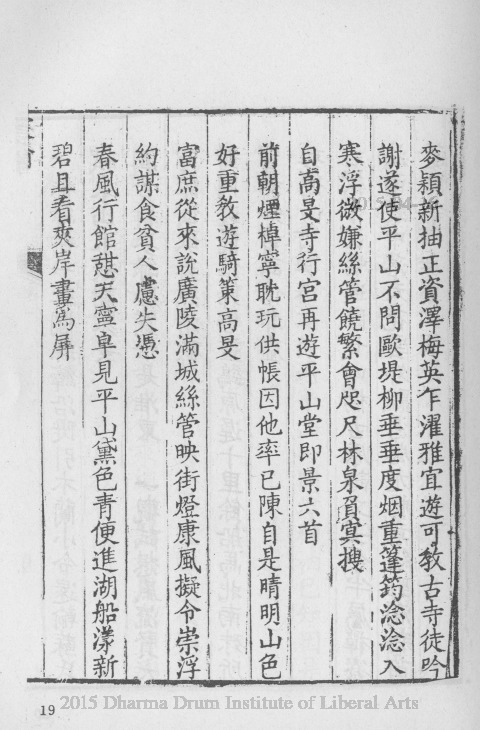 麥穎新抽正資澤梅英乍濯雅宜遊可教古寺徒吟
謝遂使平山不問歐堤柳垂垂度烟重篷筠淰淰入
寒浮微嫌絲管饒繁會咫尺林泉負冥搜
自高旻寺行宮再遊平山堂即景六首
前朝煙棹寧耽玩供帳因他率已陳自是晴明山色
好重教遊騎策高旻
富庶從來說廣陵滿城絲管映街燈康風擬令崇浮
約謀食貧人慮失憑
春風行館憩天寧早見平山黛色青便進湖船漾新
碧且看夾岸畫為屏
19
2015 Dharma Drum Institute of Liberal Arts